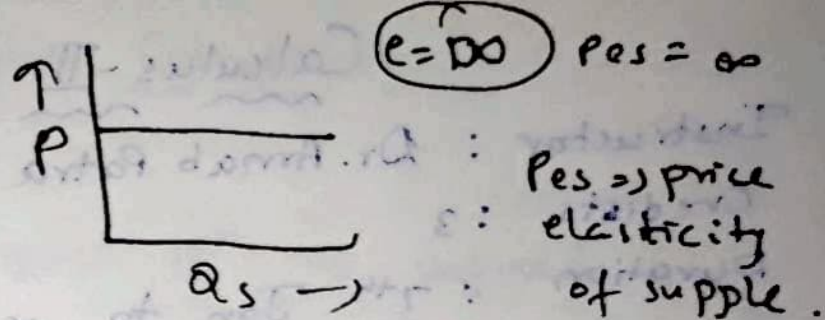 e = ∞ Pes = ∞
↑
P
Pes => price
elasticity
of supple.
Qs →